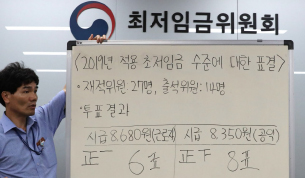 최저임금위원회
<2019년 적용 최저임금 수준에 대한 표결>
· 재적위원: 27명, 출석위원: 14명
· 투표 결과
시급 8,680원(근로자) 시급 8,350원(공익)
正一 6표 正下 8표